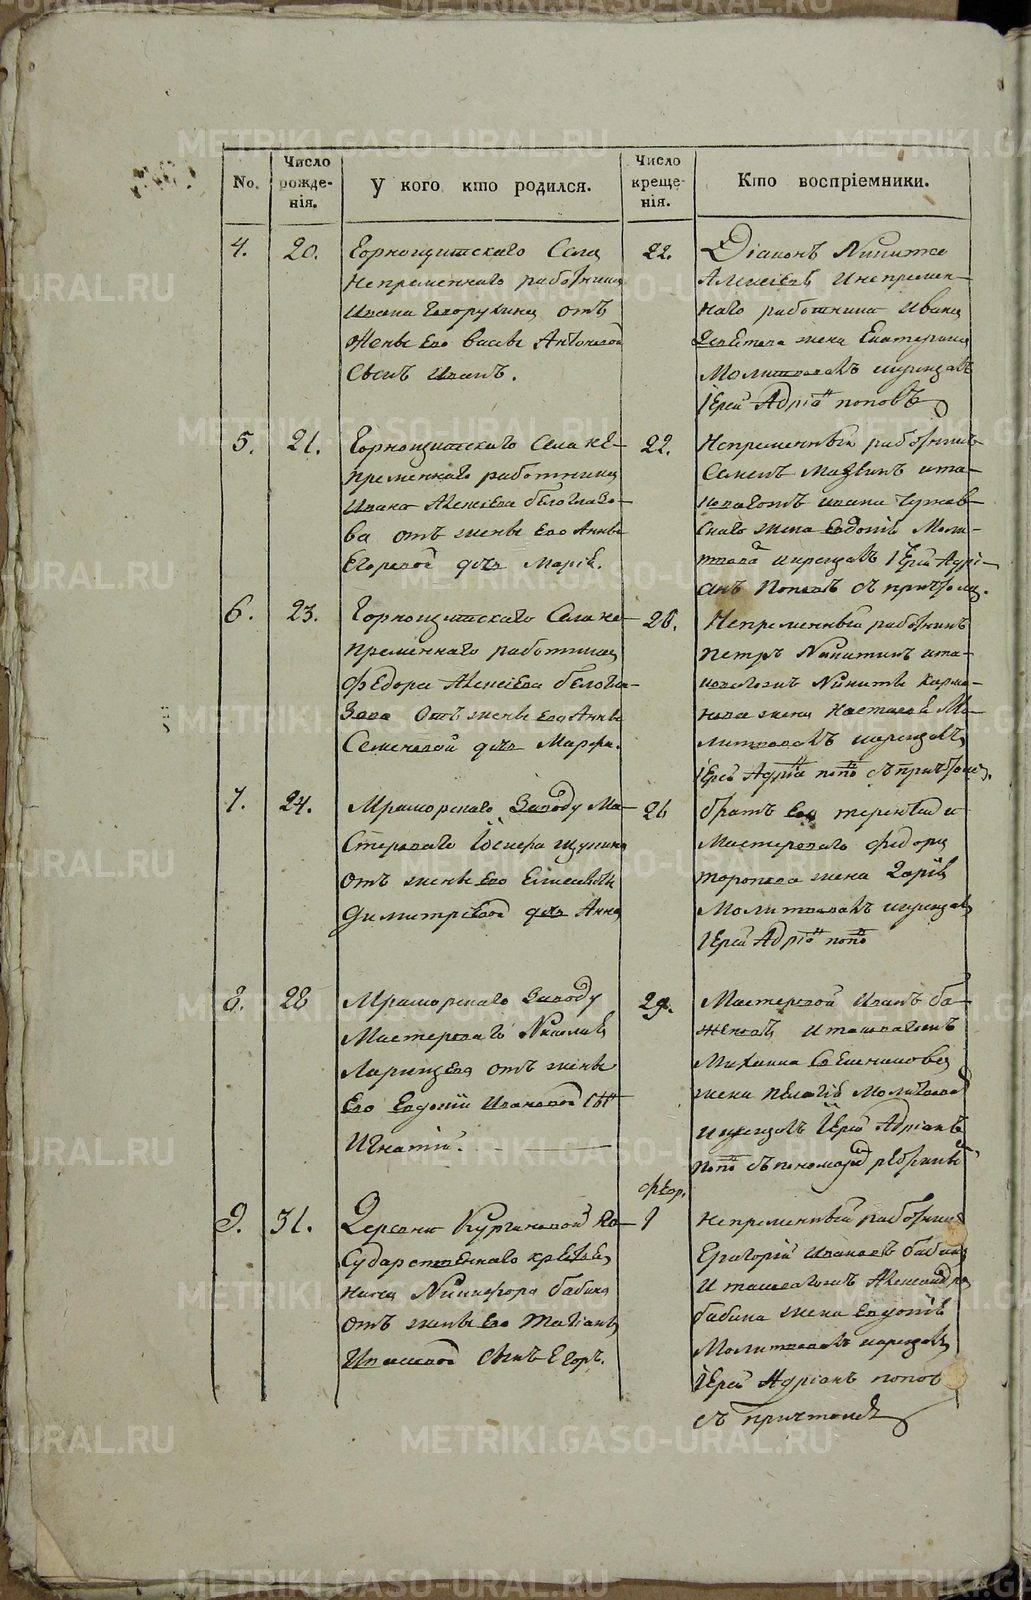 METRIKI.GASO-URAL.RU
No.
Число рожде- нія.
У кого кто родился.
Число креще- нія.
Кто воспріемники.
4.
20.
Горнощитскаго Села
Непременнаго работника
Ивана от
жены Ево Антоновой
Сынъ Иванъ.
22.
Діаконъ
Алексіевъ Инепремен-
наго работника Ивана
жена Екатерина
Молитвовалъ икрещалъ
Іерей Адріанъ поповъ
5.
21.
Горнощитскаго Села не-
пременнаго работника
Ивана Алексіева белоглазо-
ва отъ жены Ево Анны
Егоревой дочь Марія.
22.
Непременный работникъ
Семенъ ита-
ковагожъ ивана
скаго жена Евдокія Моли-
твова икрещалъ Іерей Адрі-
анъ Поповъ съ причтомъ.
6.
23.
Горнощитскаго Села не-
пременнаго работника
Федора Алексіева белогла-
зова отъ жены ево Анны
Семеновой дочь Марфа.
26.
Непременный работникъ
Петръ Никитинъ ита-
ковагожъ Никиты Карма-
нова жена Настасья Мо-
литвовалъ икрещалъ
Іерей Адріанъ попо съпричтомъ.
7.
24.
Мраморскаго Заводу Ма-
стероваго щукина
отъ жены Ево
димитревой дочь Анна
26
братъ Ево терентей и
Мастероваго федора
торопова жена Дарія
Молитвовалъ икрещалъ
Іерей Адріанъ попо
8.
28
Мраморскаго Заводу
Мастероваго Николая
Ларинцева отъ жены
Ево Евдокіи Ивановой сынъ
Игнатій.
29.
Мастеровой Иванъ ба-
женовъ итаковагожъ
Михаила
жена пелагія Молитвовалъ
икрещалъ Іерей Адріанъ
попо съпономаремъ
9.
31.
Деревни Кургановой Го-
сударственнаго крестья-
нина Никифора бабина
отъ жены Ево Татіаны
сынъ Егоръ.
февр.
1
Непременный работникъ
Григорій Ивановъ бабинъ
И таковагожъ Александра
бабина жена Евдокія
Молитвовалъ икрещалъ
Іерей Адріанъ попов
съ причтомъ